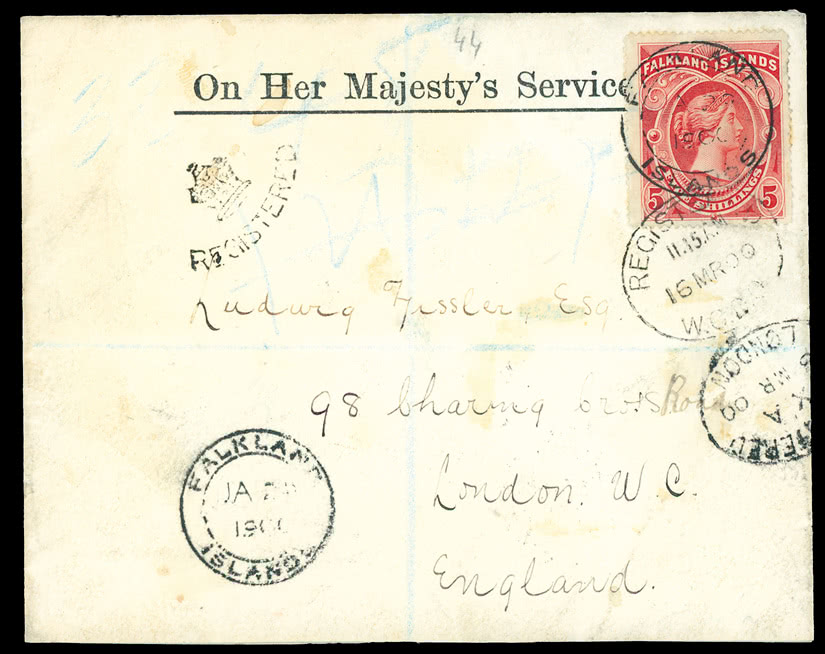 44
On Her Majesty's Service
FALKLAND ISLANDS
5 SHILLINGS 5
1900
ISLANDS
REGISTERED
REGIST
11.45AM
16 MR 00
W.C.
Ludwig Hessler, Esq.
LONDON
MR 00
98 Charing Cross Road
FALKLAND
JA 2
1900
ISLANDS
London. W.C.
England.